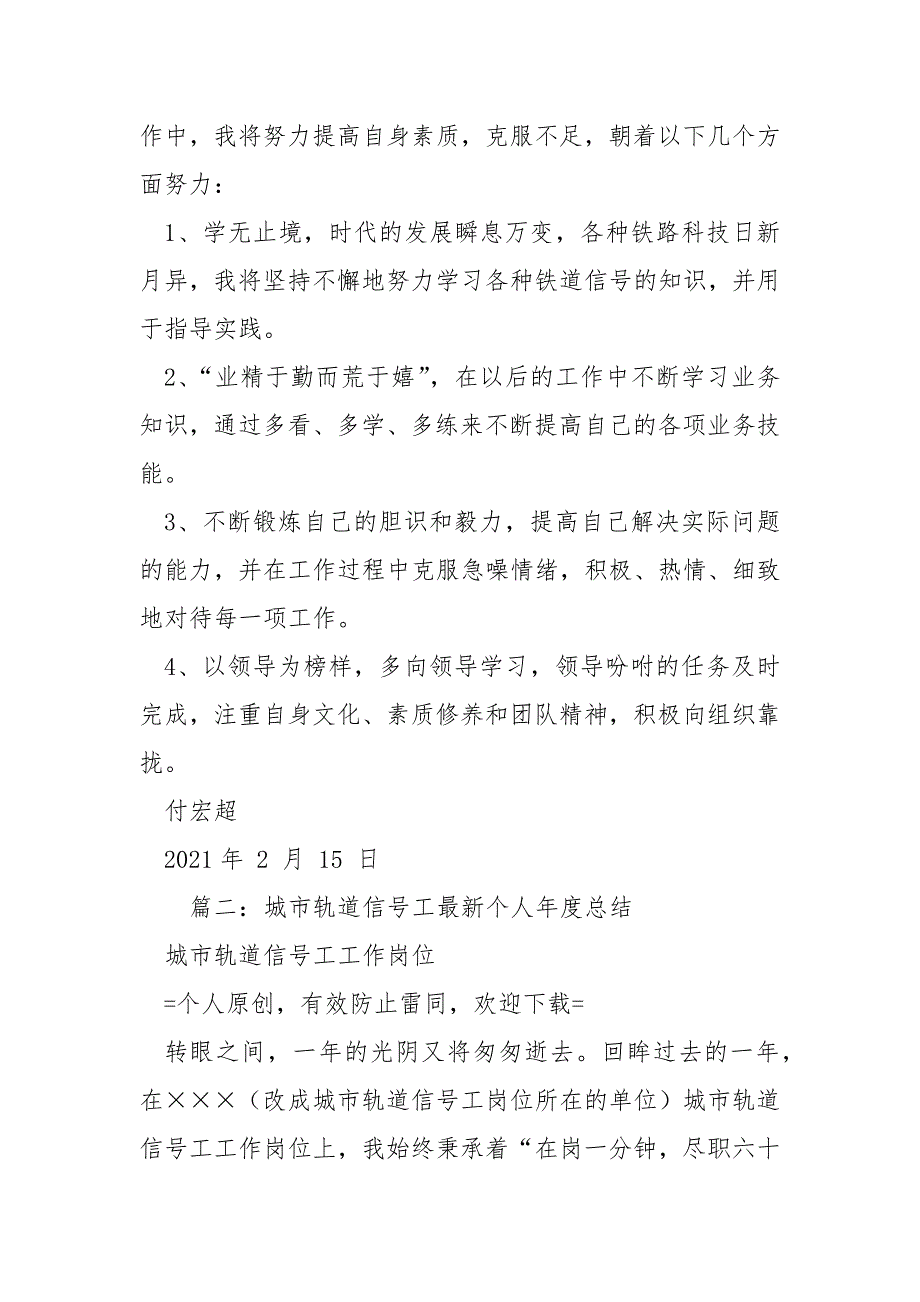 作中，我将努力提高自身素质，克服不足，朝着以下几个方
面努力：
1、学无止境，时代的发展瞬息万变，各种铁路科技日新
月异，我将坚持不懈地努力学习各种铁道信号的知识，并用
于指导实践。
2、“业精于勤而荒于嬉”，在以后的工作中不断学习业务
知识，通过多看、多学、多练来不断提高自己的各项业务技
能。
3、不断锻炼自己的胆识和毅力，提高自己解决实际问题
的能力，并在工作过程中克服急噪情绪，积极、热情、细致
地对待每一项工作。
4、以领导为榜样，多向领导学习，领导吩咐的任务及时
完成，注重自身文化、素质修养和团队精神，积极向组织靠
拢。
付宏超
2021 年 2 月 15 日
篇二：城市轨道信号工最新个人年度总结
城市轨道信号工工作岗位
=个人原创，有效防止雷同，欢迎下载=
转眼之间，一年的光阴又将匆匆逝去。回眸过去的一年，
在×××（改成城市轨道信号工岗位所在的单位）城市轨道
信号工工作岗位上，我始终秉承着“在岗一分钟，尽职六十